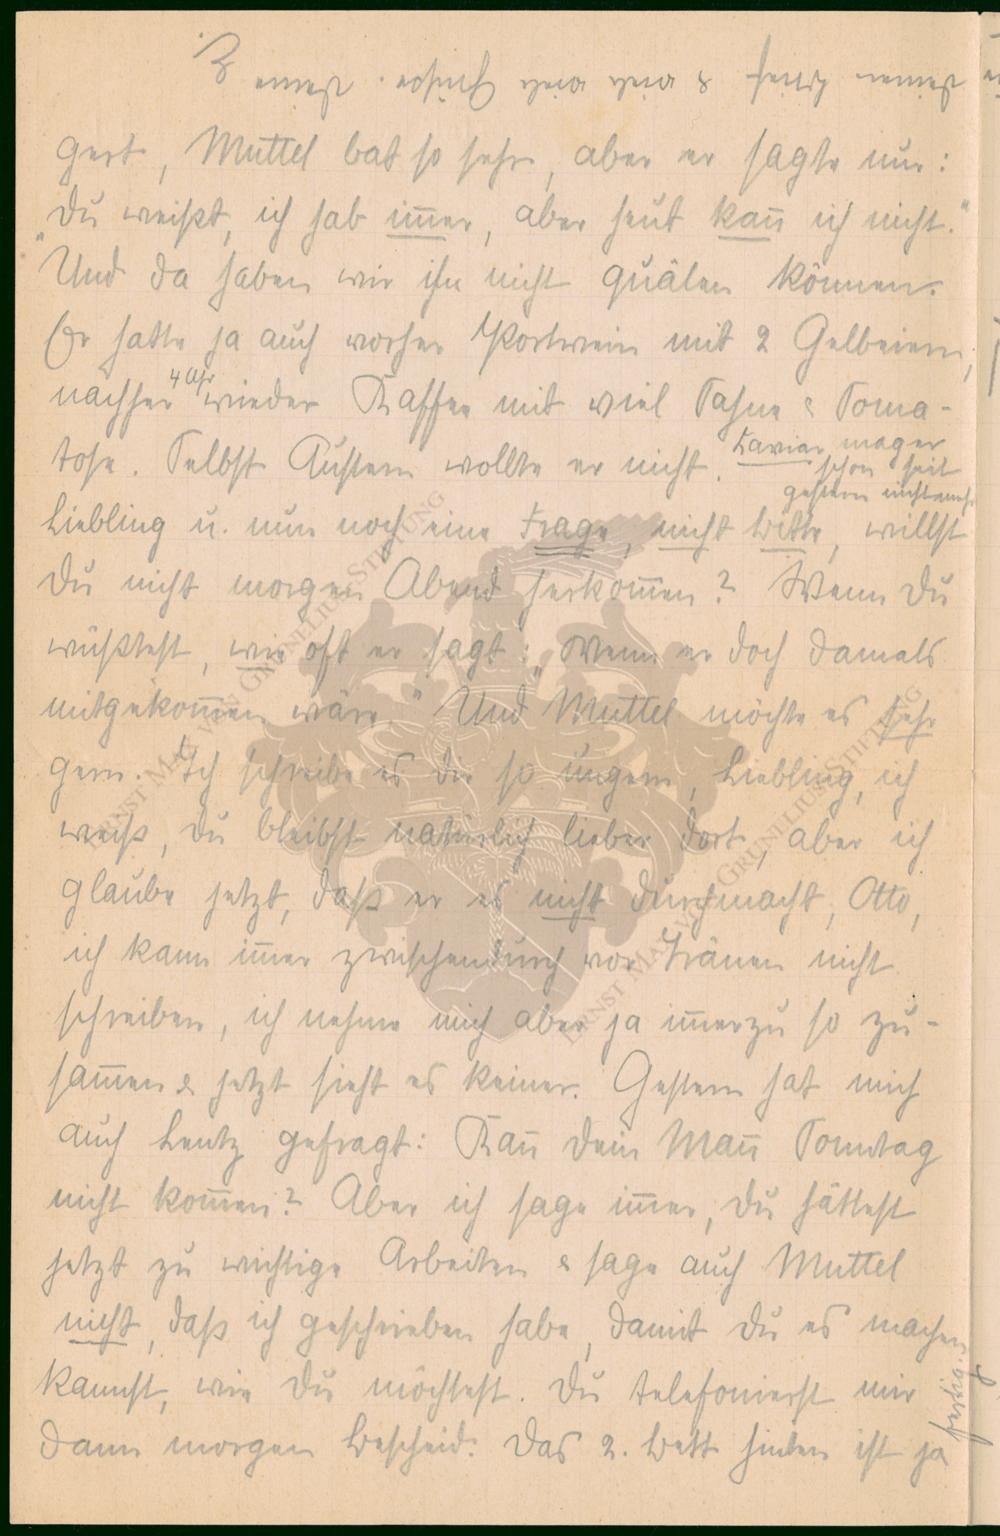 gert, Muttel bat so sehr, aber er sagte nur:
„Du weißt, ich hab im̅er, aber heut kan̅ ich nicht.“
Und da haben wir ihn nicht quälen können.
Er hatte ja auch vorher Portwein mit 2 Gelbeiern,
nachher 4 Uhr wieder Kaffee mit viel Sahne & Soma-
tose. Selbst Austern wollte er nicht. Kaviar mager
schon seit
gestern nicht mehr
Liebling u. nun noch eine Frage, nicht Bitte, willst
Du nicht morgen Abend herkom̅en? Wenn Du
wüßtest, wie oft er sagt: „Wenn er doch damals
mitgekom̅en wäre.“ Und Muttel möchte es sehr
gern. Ich schreibe es dir so ungern, Liebling, ich
weiß, du bleibst natürlich lieber dort, aber ich
glaube jetzt, daß er es nicht durchmacht, Otto,
ich kann im̅er zwischendurch vor Tränen nicht
schreiben, ich nehme mich aber ja im̅erzu so zu-
sam̅en & jetzt sieht es keiner. Gestern hat mich
auch Lentz gefragt: Kan̅ dein Man̅ Sonntag
nicht kom̅en? Aber ich sage im̅er, Du hättest
jetzt zu wichtige Arbeiten & sage auch Muttel
nicht, daß ich geschrieben habe, damit Du es machen
kannst, wie Du möchtest. Du telefonierst mir
dann morgen Bescheid. Das 2. Bett hinten ist ja
fertig.
ERNST MAX VON GRUNELIUS-STIFTUNG
ERNST MAX VON GRUNELIUS-STIFTUNG